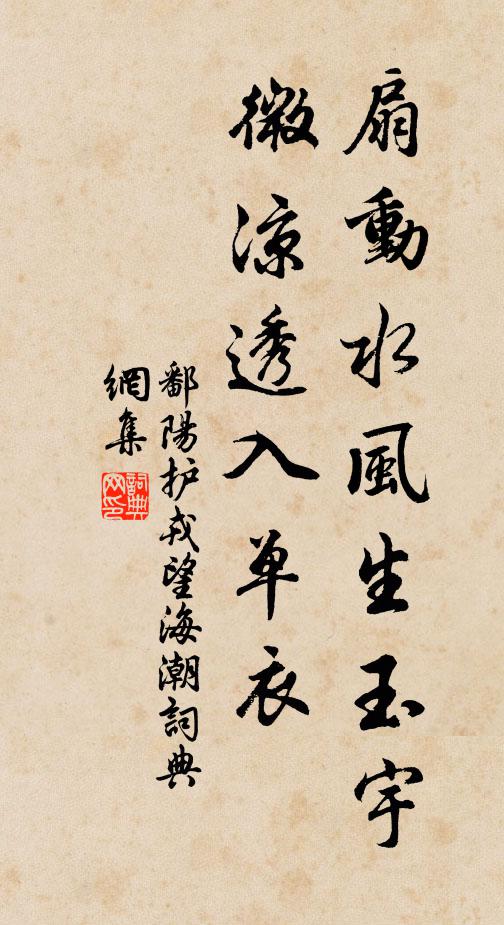 扇動水風生玉宇
微涼透入单衣
鄱陽护戎望海潮詞典
網集
詞典网印